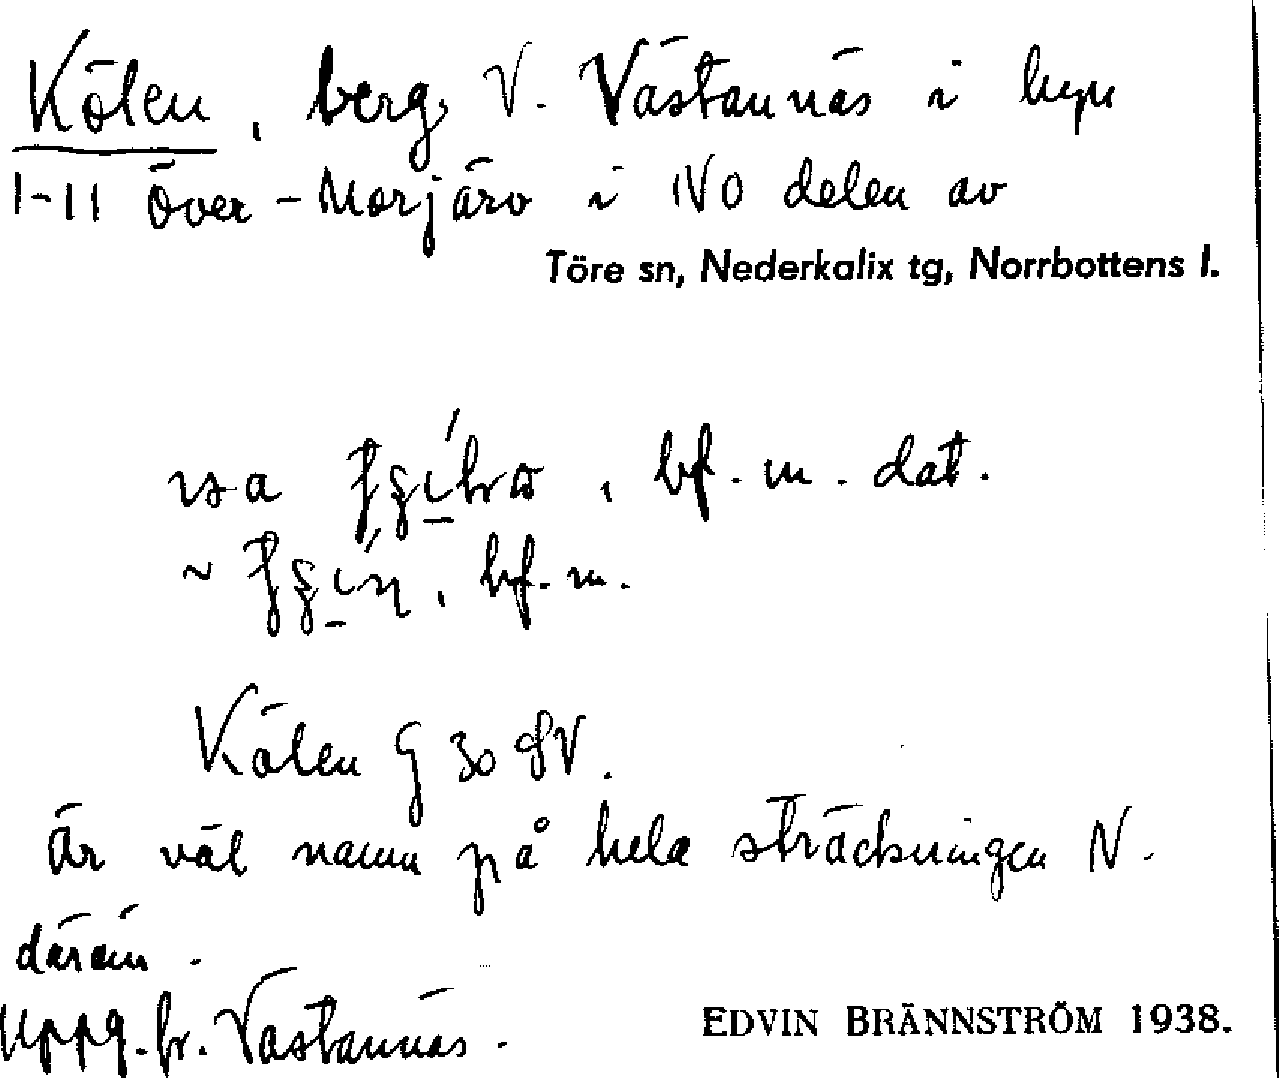 Kölen, berg, V. Västannäs i byn
1-11 över-Morjärv i NO delen av
Töre sn, Nederkalix tg, Norrbottens l.
bf. m. dat.
~ bf. m.
Kölen G 30 SV.
är väl namn på hela sträckningen N.
därom.
Uppg. fr. Västannäs.
EDVIN BRÄNNSTRÖM 1938.